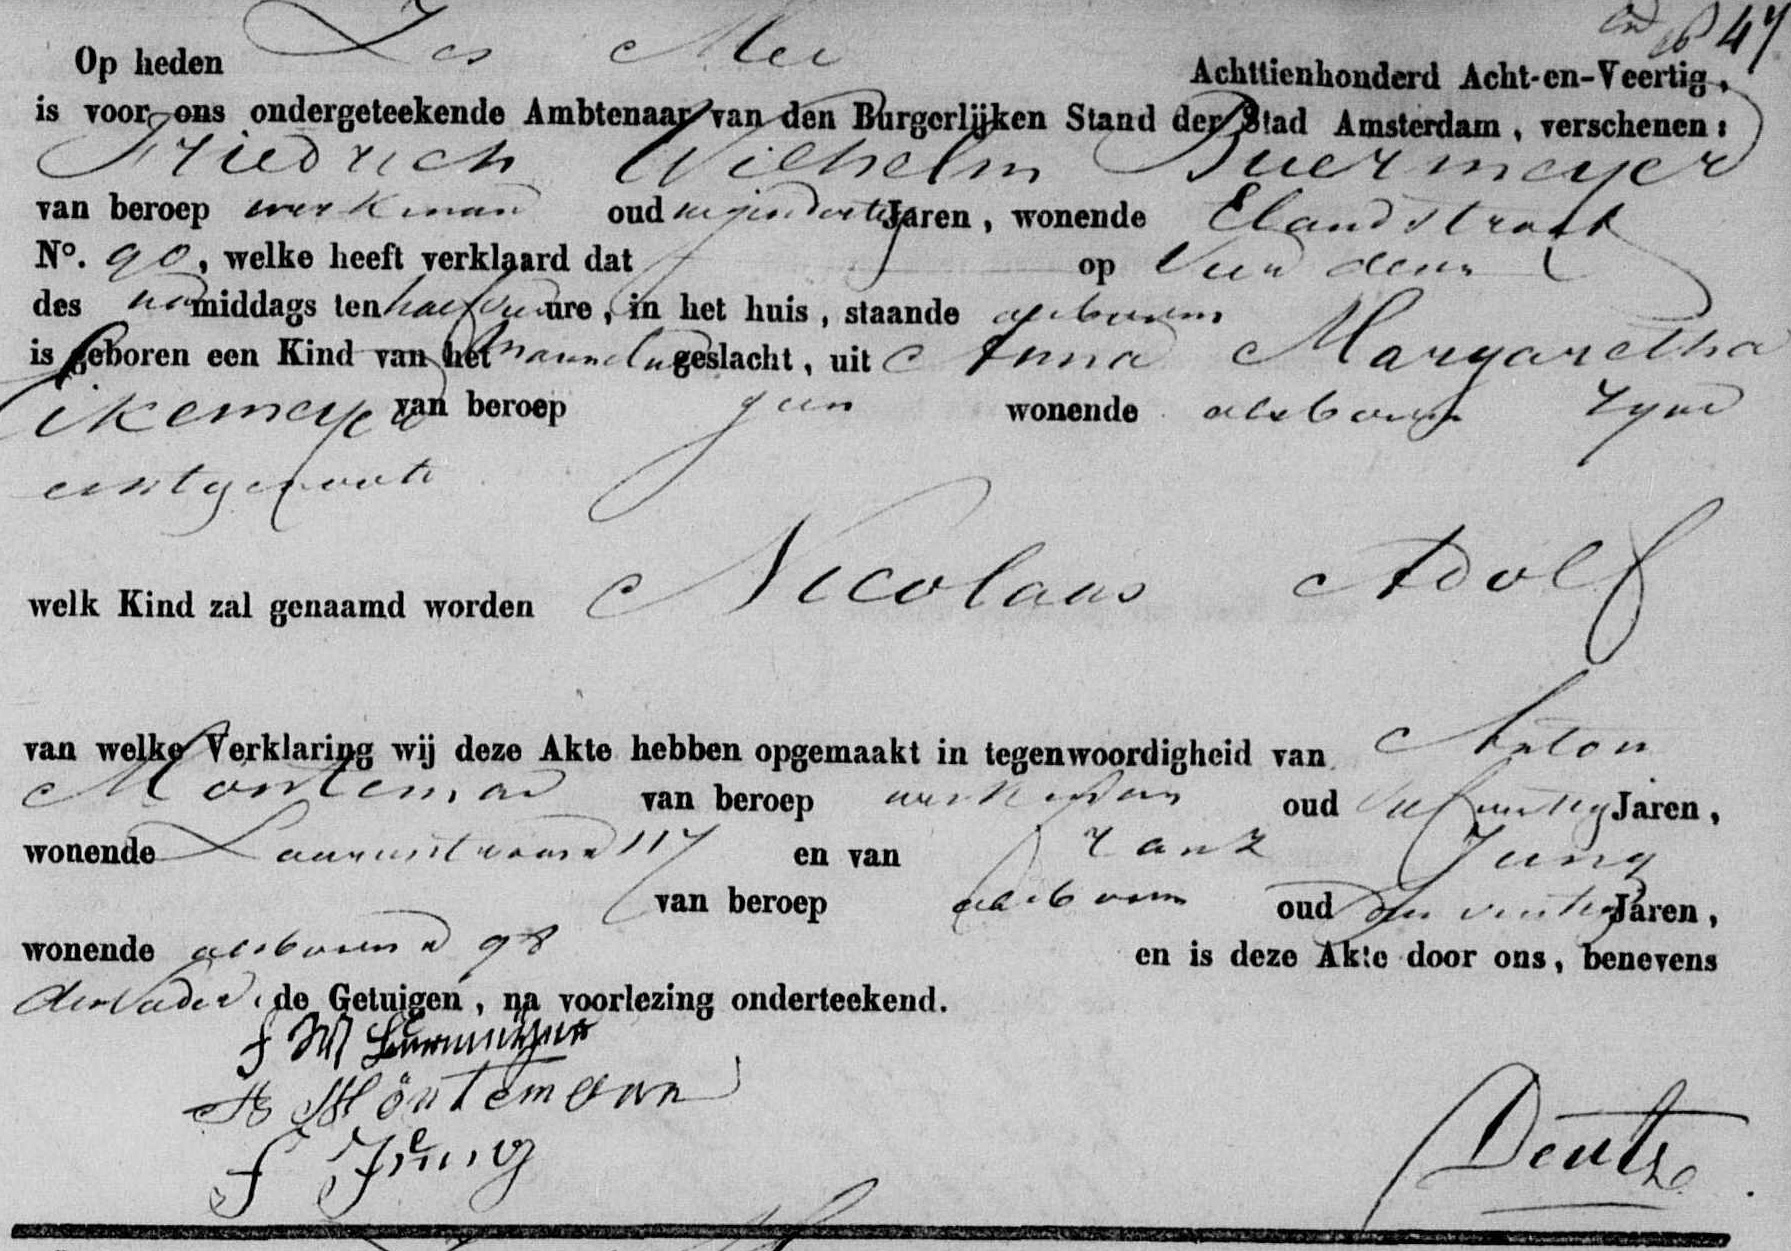 47
Op heden Zes Mei Achttienhonderd Acht-en-Veertig,
is voor ons ondergeteekende Ambtenaar van den Burgerlijken Stand der Stad Amsterdam, verschenen:
Friedrich Wilhelm Buermeyer
van beroep werkman oud negendertig Jaren, wonende Elandstraat
No. 90, welke heeft verklaard dat op Vier dezer
des namiddags ten half vier ure, in het huis, staande alsboven
is geboren een Kind van het Mannelijk geslacht, uit Anna Margaretha
Eikemeyer van beroep geen wonende alsboven zyne
echtgenoote
welk Kind zal genaamd worden Nicolaas Adolf
van welke Verklaring wij deze Akte hebben opgemaakt in tegenwoordigheid van Anton
Monteman van beroep werkman oud Jaren,
wonende Laurierstraat 117 en van Franz Jung
van beroep alsboven oud Jaren,
wonende alsboven 98 en is deze Akte door ons, benevens
den Vader, de Getuigen, na voorlezing onderteekend.
F W Buermeyer
A Möntemann
F Jung
Deutz